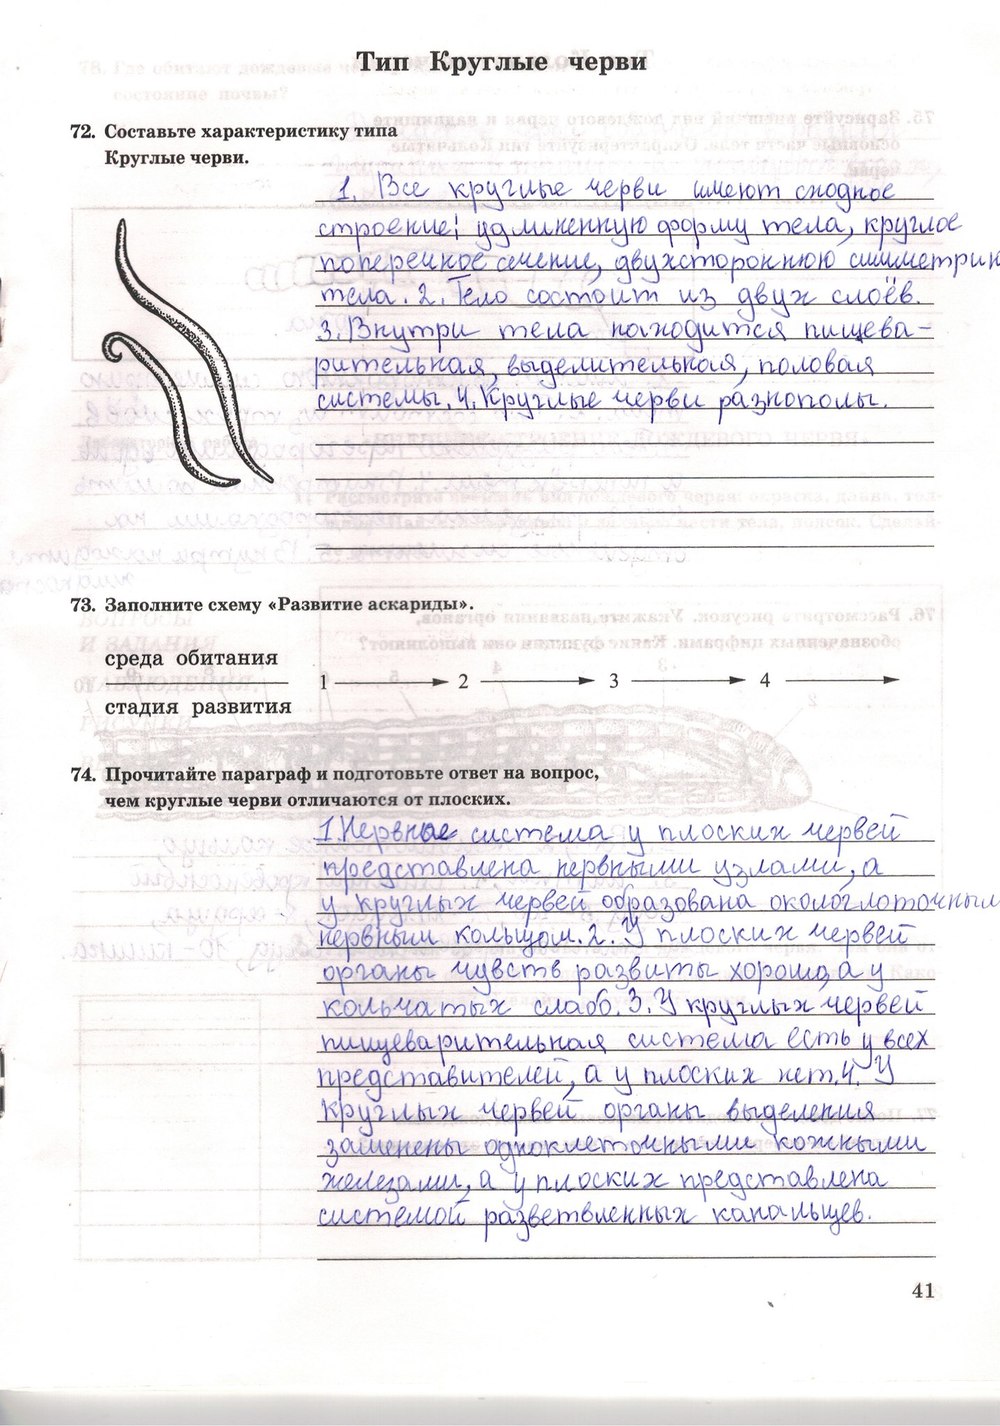 Тип Круглые черви
72. Составьте характеристику типа
Круглые черви.
1. Все круглые черви имеют сходное
строение: удлиненную форму тела, круглое
поперечное сечение, двухстороннюю симметрию
тела. 2. Тело состоит из двух слоёв.
3. Внутри тела находится пищева-
рительная, выделительная, половая
системы. 4. Круглые черви разнополы.
73. Заполните схему «Развитие аскариды».
среда обитания
стадия развития
1 → 2 → 3 → 4 →
74. Прочитайте параграф и подготовьте ответ на вопрос,
чем круглые черви отличаются от плоских.
1. Нервная система у плоских червей
представлена нервными узлами, а
у круглых червей образована окологлоточным
нервным кольцом. 2. У плоских червей
органы чувств развиты хорошо, а у
кольчатых слабо. 3. У круглых червей
пищеварительная система есть у всех
представителей, а у плоских нет. 4. У
круглых червей органы выделения
заменены одноклеточными кожными
железами, а у плоских представлена
системой разветвленных канальцев.
41